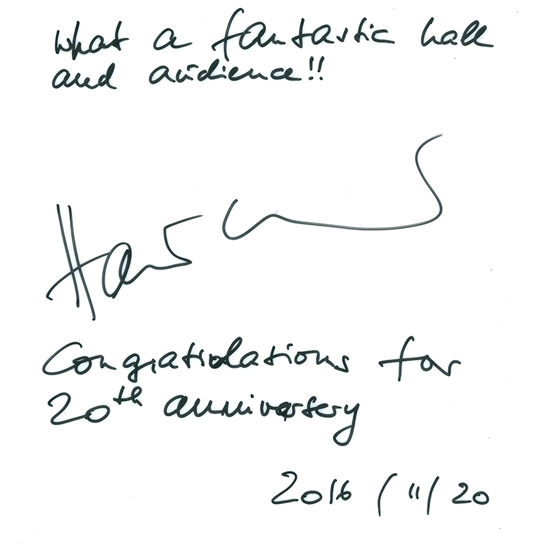 What a fantastic hall
and audience!!
Congratulations for
20th anniversery
2016 / 11 / 20